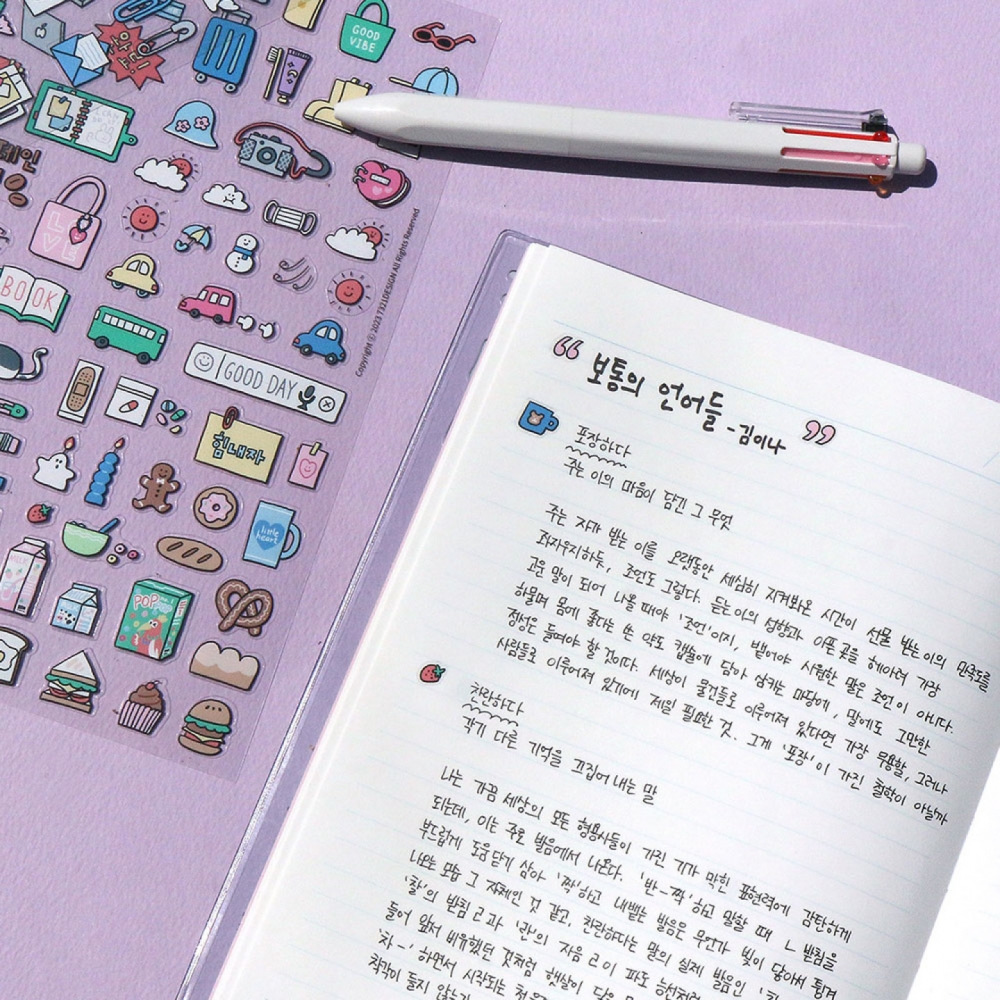 GOOD
VIBE
LOVE
BOOK
GOOD DAY
힘내자
little
heart
POP
Copyright ⓒ 2023 T321DESIGN All Rights Reserved
“ 보통의 언어들 - 김이나 ”
포장하다
주는 이의 마음이 담긴 그 무엇
주는 자가 받는 이를 오랫동안 세심히 지켜봐온 시간이 선물 받는 이의 만족도를
좌지우지하듯, 조언도 그렇다. 듣는 이의 성향과 아픈 곳을 헤아려 가장
고운 말이 되어 나올 때야 '조언'이지, 뱉어야 시원한 말은 조언이 아니다.
하물며 몸에 좋다는 쓴 약도 캡슐에 담아 삼키는 마당에, 말에도 그만한
정성은 들여야 할 것이다. 세상이 물건들로 이루어져 있다면 가장 무용할, 그러나
사람들로 이루어져 있기에 제일 필요한 것. 그게 '포장'이 가진 철학이 아닐까
찬란하다
각기 다른 기억을 끄집어 내는 말
나는 가끔 세상의 모든 형용사들이 가진 기가 막힌 표현력에 감탄하게
되는데, 이는 주로 발음에서 나온다. '반-짝'하고 말할 때 ㄴ 받침을
부드럽게 도움닫기 삼아 '짝'하고 내뱉는 발음은 무언가 빛이 닿아서 튕겨
나오는 모습 그 자체인 것 같고, 찬란하다는 말의 실제 발음인
'찰'의 받침 ㄹ과 '란'의 자음 ㄹ이 파도 능선처럼
들어 앞서 비유했던 것처럼 햇살이 닿은
'차-' 하면서 시작되는 첫
착각이 들지 않는가